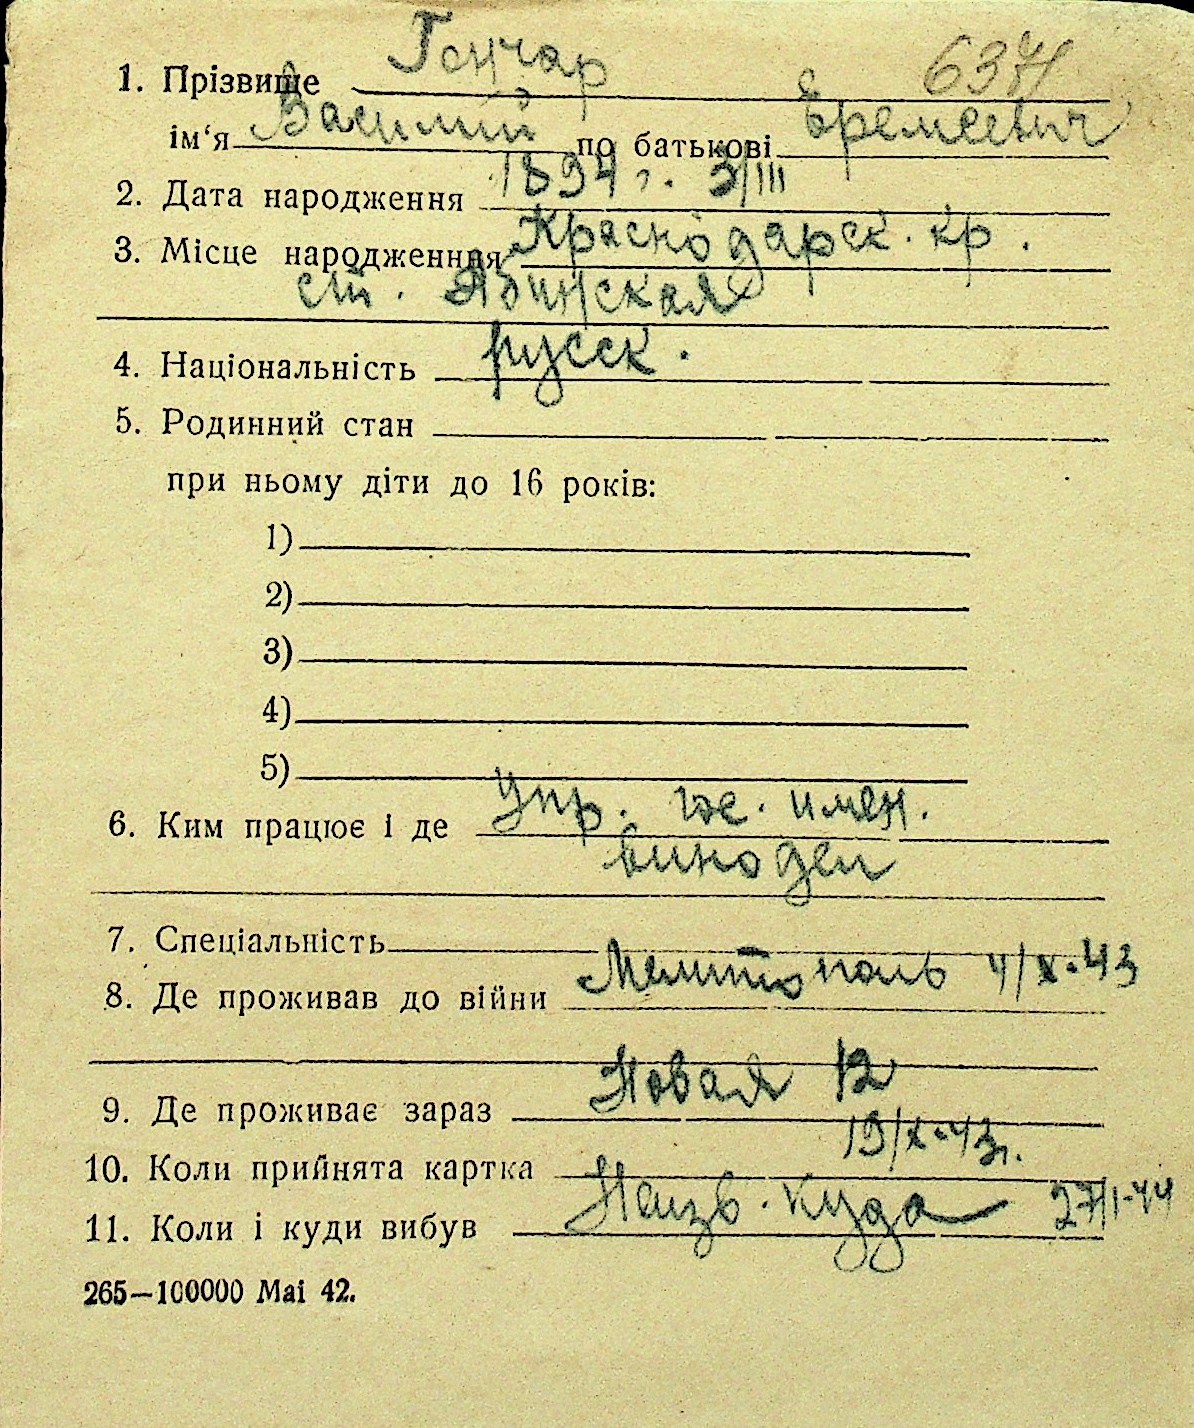 Гончар 6371
1. Прізвище
Василий Еремеевич
ім‘я по батькові
1894 г. 3/III
2. Дата народження
Краснодарск. кр.
3. Місце народженння
ст. Абинская
русск.
4. Національність
5. Родинний стан
при ньому діти до 16 років:
1)
2)
3)
4)
5)
Упр. гос. имен.
6. Ким працює і де
винодел
7. Спеціальність
Мелитополь 4/X-43
8. Де проживав до війни
Новая 12
9. Де проживає зараз
19/X-43г.
10. Коли прийнята картка
Неизв. куда 27/I-44
11. Коли і куди вибув
265—100000 Mai 42.